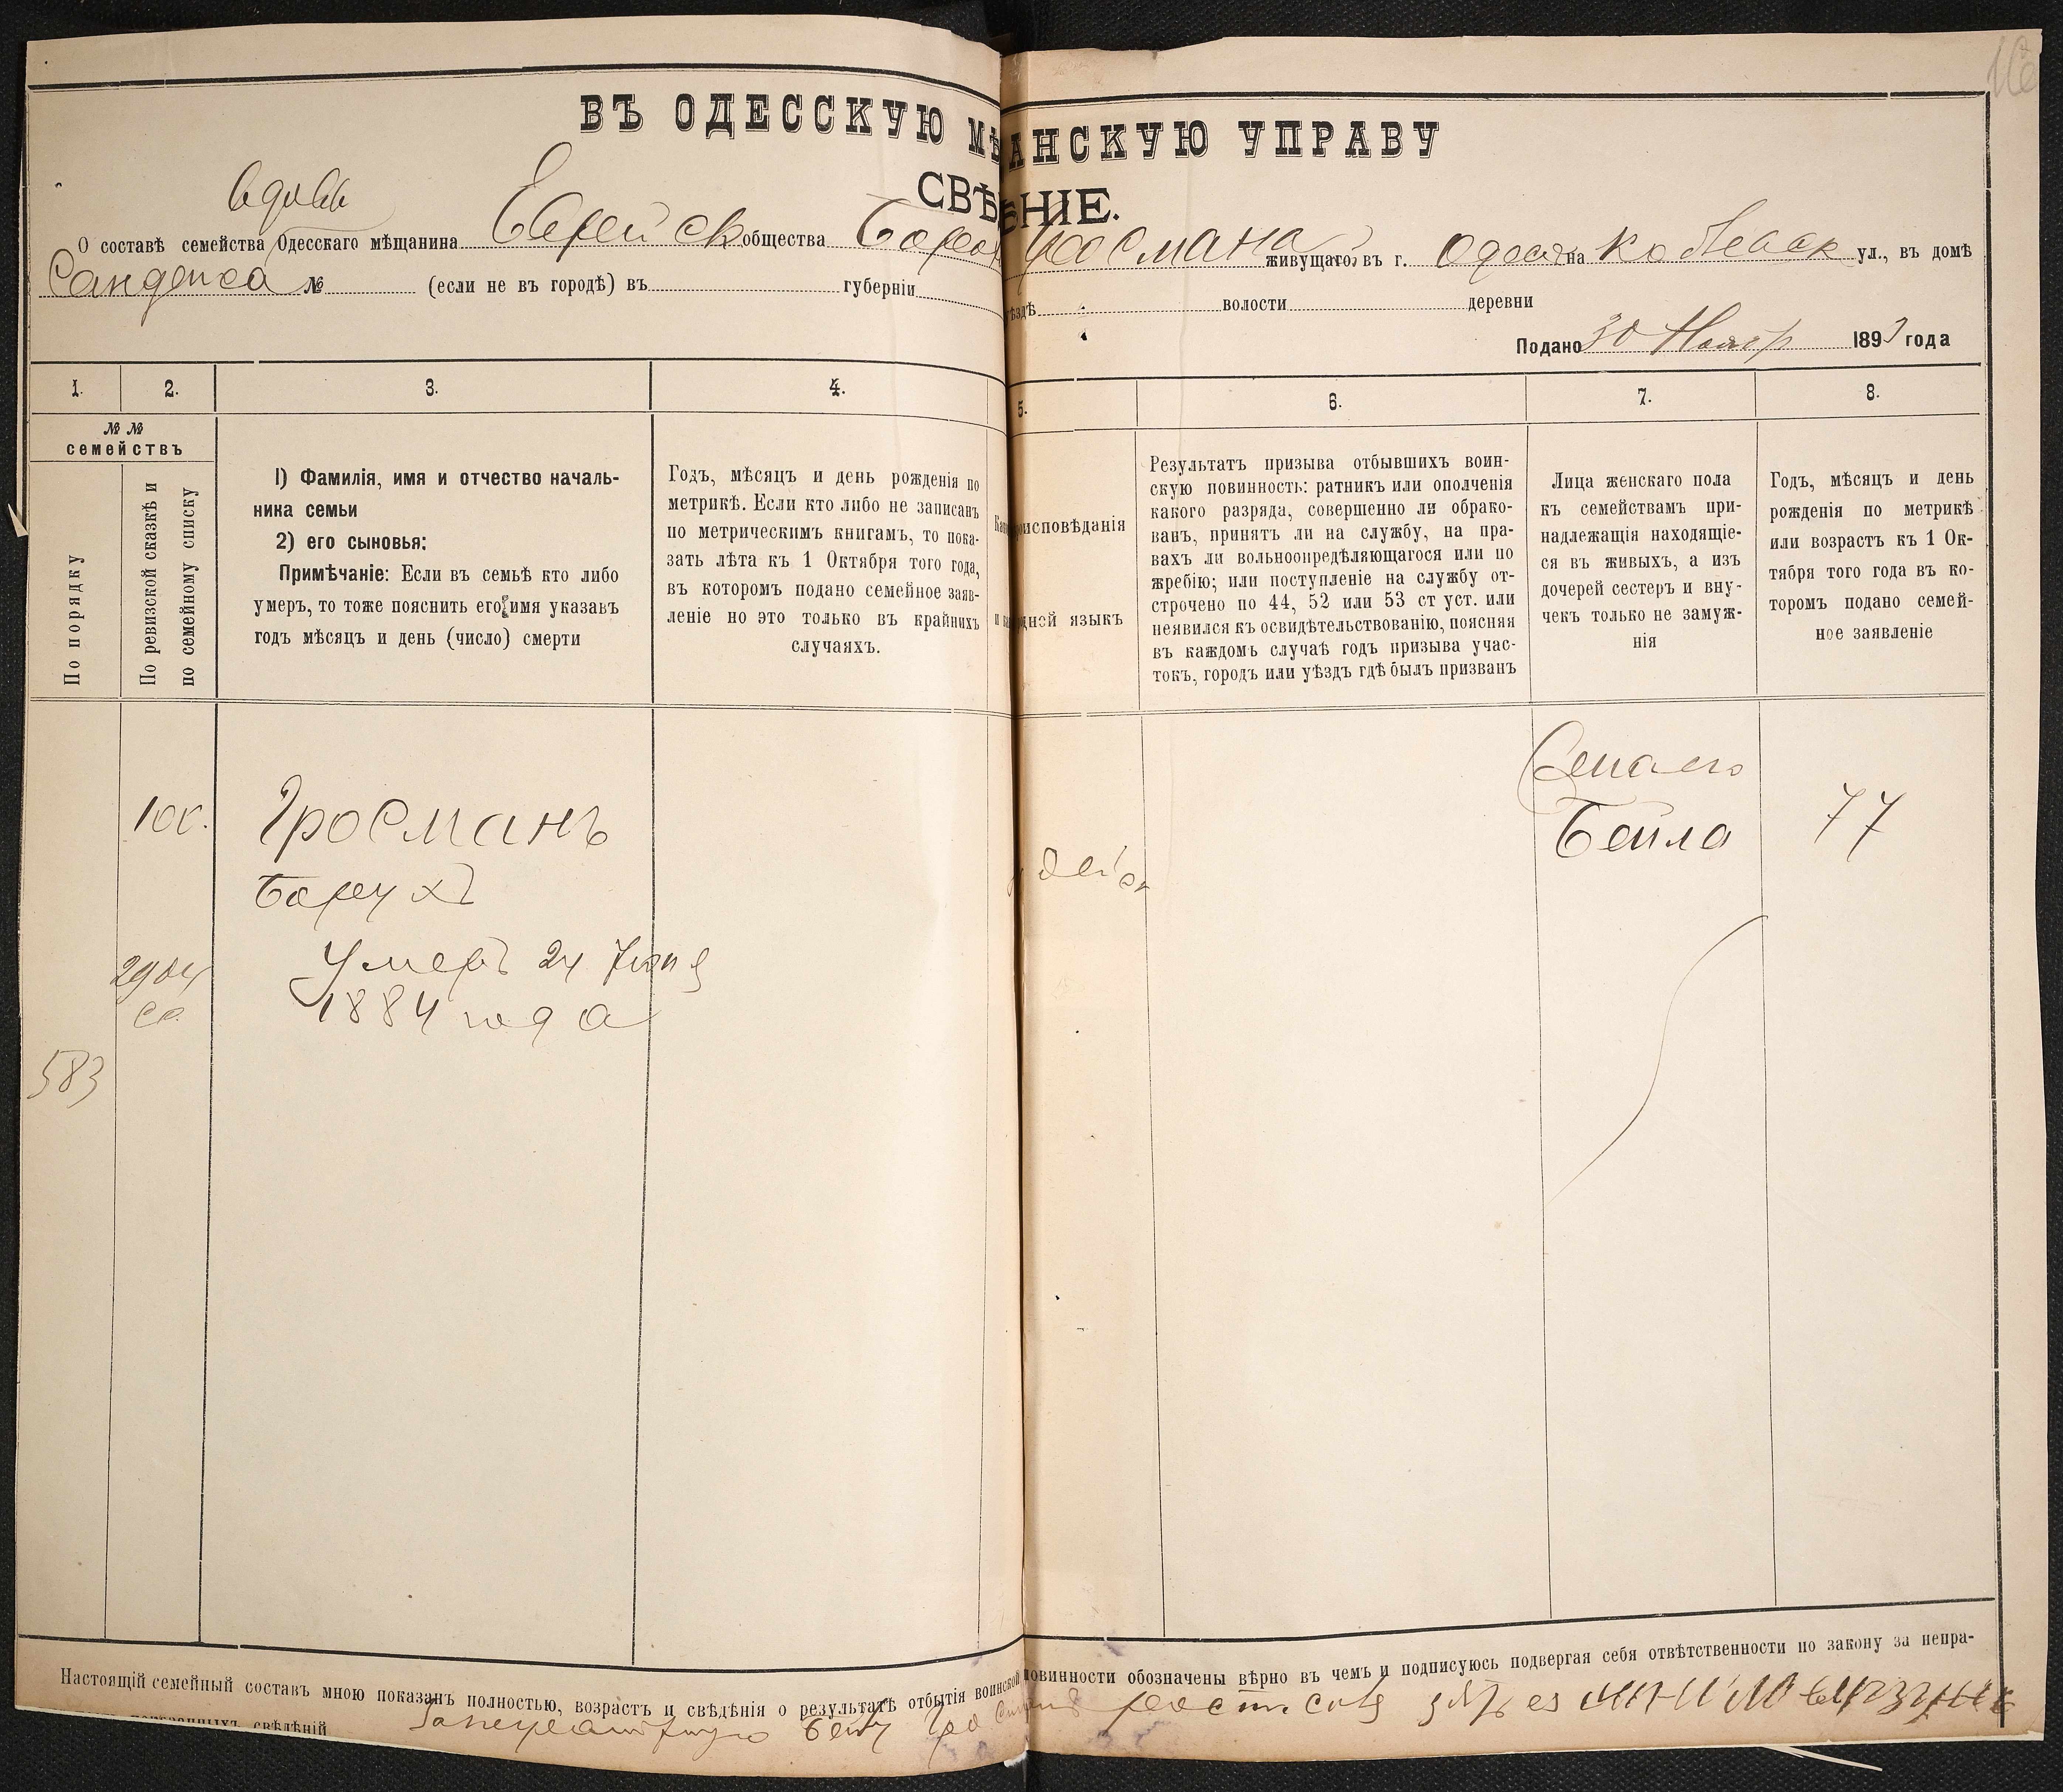 ВЪ ОДЕССКУЮ МѢ АНСКУЮ УПРАВУ
СВѢ ѢНІЕ.
вдовѣ
О составѣ семейства Одесскаго мѣщанина Еврейск общества Борох Гросмана живущаго въ г. Одессѣ на Коблевск ул., въ домѣ
№ (если не въ городѣ) въ губерніи ѣздѣ волости деревни
Подано 30 Ноябр 1893 года
1. 2. 3. 4. 5. 6. 7. 8.
№ №
семействъ
По порядку
По ревизской сказкѣ и
по семейному списку
1) Фамилія, имя и отчество началь-
ника семьи
2) его сыновья:
Примѣчаніе: Если въ семьѣ кто либо
умеръ, то тоже пояснить его имя указавъ
годъ мѣсяцъ и день (число) смерти
Годъ, мѣсяцъ и день рожденія по
метрикѣ. Если кто либо не записанъ
по метрическимъ книгамъ, то пока-
зать лѣта къ 1 Октября того года,
въ которомъ подано семейное заяв-
леніе но это только въ крайнихъ
случаяхъ.
Как роисповѣданія
и к одной языкъ
Результатъ призыва отбывшихъ воин-
скую повинность: ратникъ или ополченія
какого разряда, совершенно ли обрако-
ванъ, принятъ ли на службу, на пра-
вахъ ли вольноопредѣляющагося или по
жребію; или поступленіе на службу от-
срочено по 44, 52 или 53 ст уст. или
неявился къ освидѣтельствованію, поясняя
въ каждомъ случаѣ годъ призыва учас-
токъ, городъ или уѣздъ гдѣ былъ призванъ
Лица женскаго пола
къ семействамъ при-
надлежащія находящіе-
ся въ живыхъ, а изъ
дочерей сестеръ и вну-
чекъ только не замуж-
нія
Годъ, мѣсяцъ и день
рожденія по метрикѣ
или возрастъ къ 1 Ок-
тября того года въ ко-
торомъ подано семей-
ное заявленіе
Гросманъ
Борухъ
Умеръ 24 Іюня
1884 года
2904
583
Жена его
Бейла
77
Настоящій семейный составъ мною показанъ полностью, возрастъ и свѣдѣнія о результатѣ отбытія воинской повинности обозначены вѣрно въ чемъ и подписуюсь подвергая себя отвѣтственности по закону за непра-
свѣдѣній
За неграмотную Бейлу